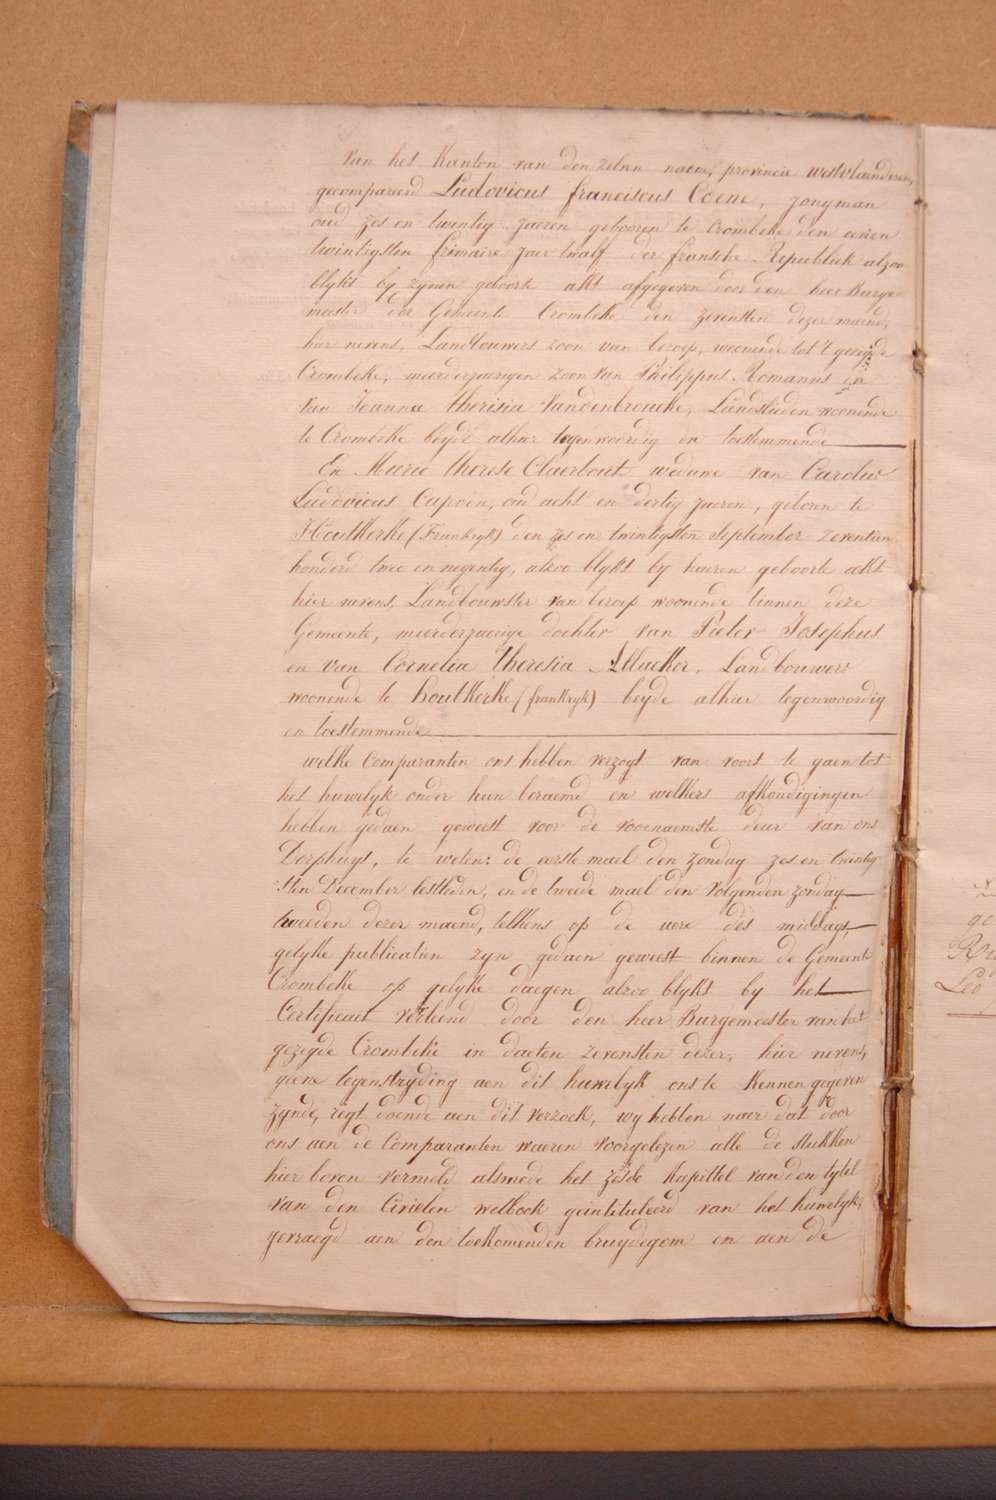 van het Kanton van den zelven naem, provincie westvlaenderen,
gecompareerd Ludovicus franciscus Coene, jongman
oud zes en twintig jaeren gebooren te Crombeke den eenen
twintigsten frimaire jaer twalf der fransche Republiek alzoo
blykt by zynen geboorte akt afgegeven door den heer Burge-
meester der Gemeente Crombeke den zevensten dezer maend,
hier nevens, Landbouwers zoon van beroep, woonende tot 't gezegde
Crombeke, meerderjaerigen zoon van Philippus Romanus en
van Joannee Therisia Vandenbroucke, Landslieden woonende
te Crombeke beyde alhier tegenwoordig en toestemmende
En Marie Therese Claerbout weduwe van Carolus
Ludovicus Capoen, oud acht en dertig jaeren, geboren te
Houtkerke (Frankryk) den zes en twintigsten September zeventien
honderd twee en negentig, alzoo blykt by haeren geboorte akt
hier nevens, Landbouwster van beroep woonende binnen deze
Gemeente, meerderjaerige dochter van Pieter Josephus
en van Cornelia Theresia Allaeker, Landbouwers
woonende te houtkerke (frankryk) beyde alhier tegenwoordig
en toestemmende
welke Comparanten ons hebben verzogt van voort te gaen tot
het huwelyk onder hun beraemd en welkers afkondigingen
hebben gedaen geweest voor de voornaemste deur van ons
Dorphuys, te weten: de eerste mael den zondag zes en twintig-
sten December lestleden, en de tweede mael den volgenden zondag
tweeden dezer maend, telkens op de uere des middags,
gelyke publicatien zyn gedaen geweest binnen de Gemeente
Crombeke op gelyke daegen alzoo blykt by het
Certificaet verleend door den heer Burgemeester van het
gezegde Crombeke in daeten zevensten dezer, hier nevens,
geene tegenstryding aen dit huwelyk ons te kennen gegeven
zynde, regt doende aen dit verzoek, wy hebben naer dat door
ons aen de Comparanten waeren voorgelezen alle de stukken
hier boven vermeld alsmede het zesde Kapittel van den tytel
van den Civielen wetboek geintituleerd van het huwelyk,
gevraegd aen den toekomenden bruydegom en aen de